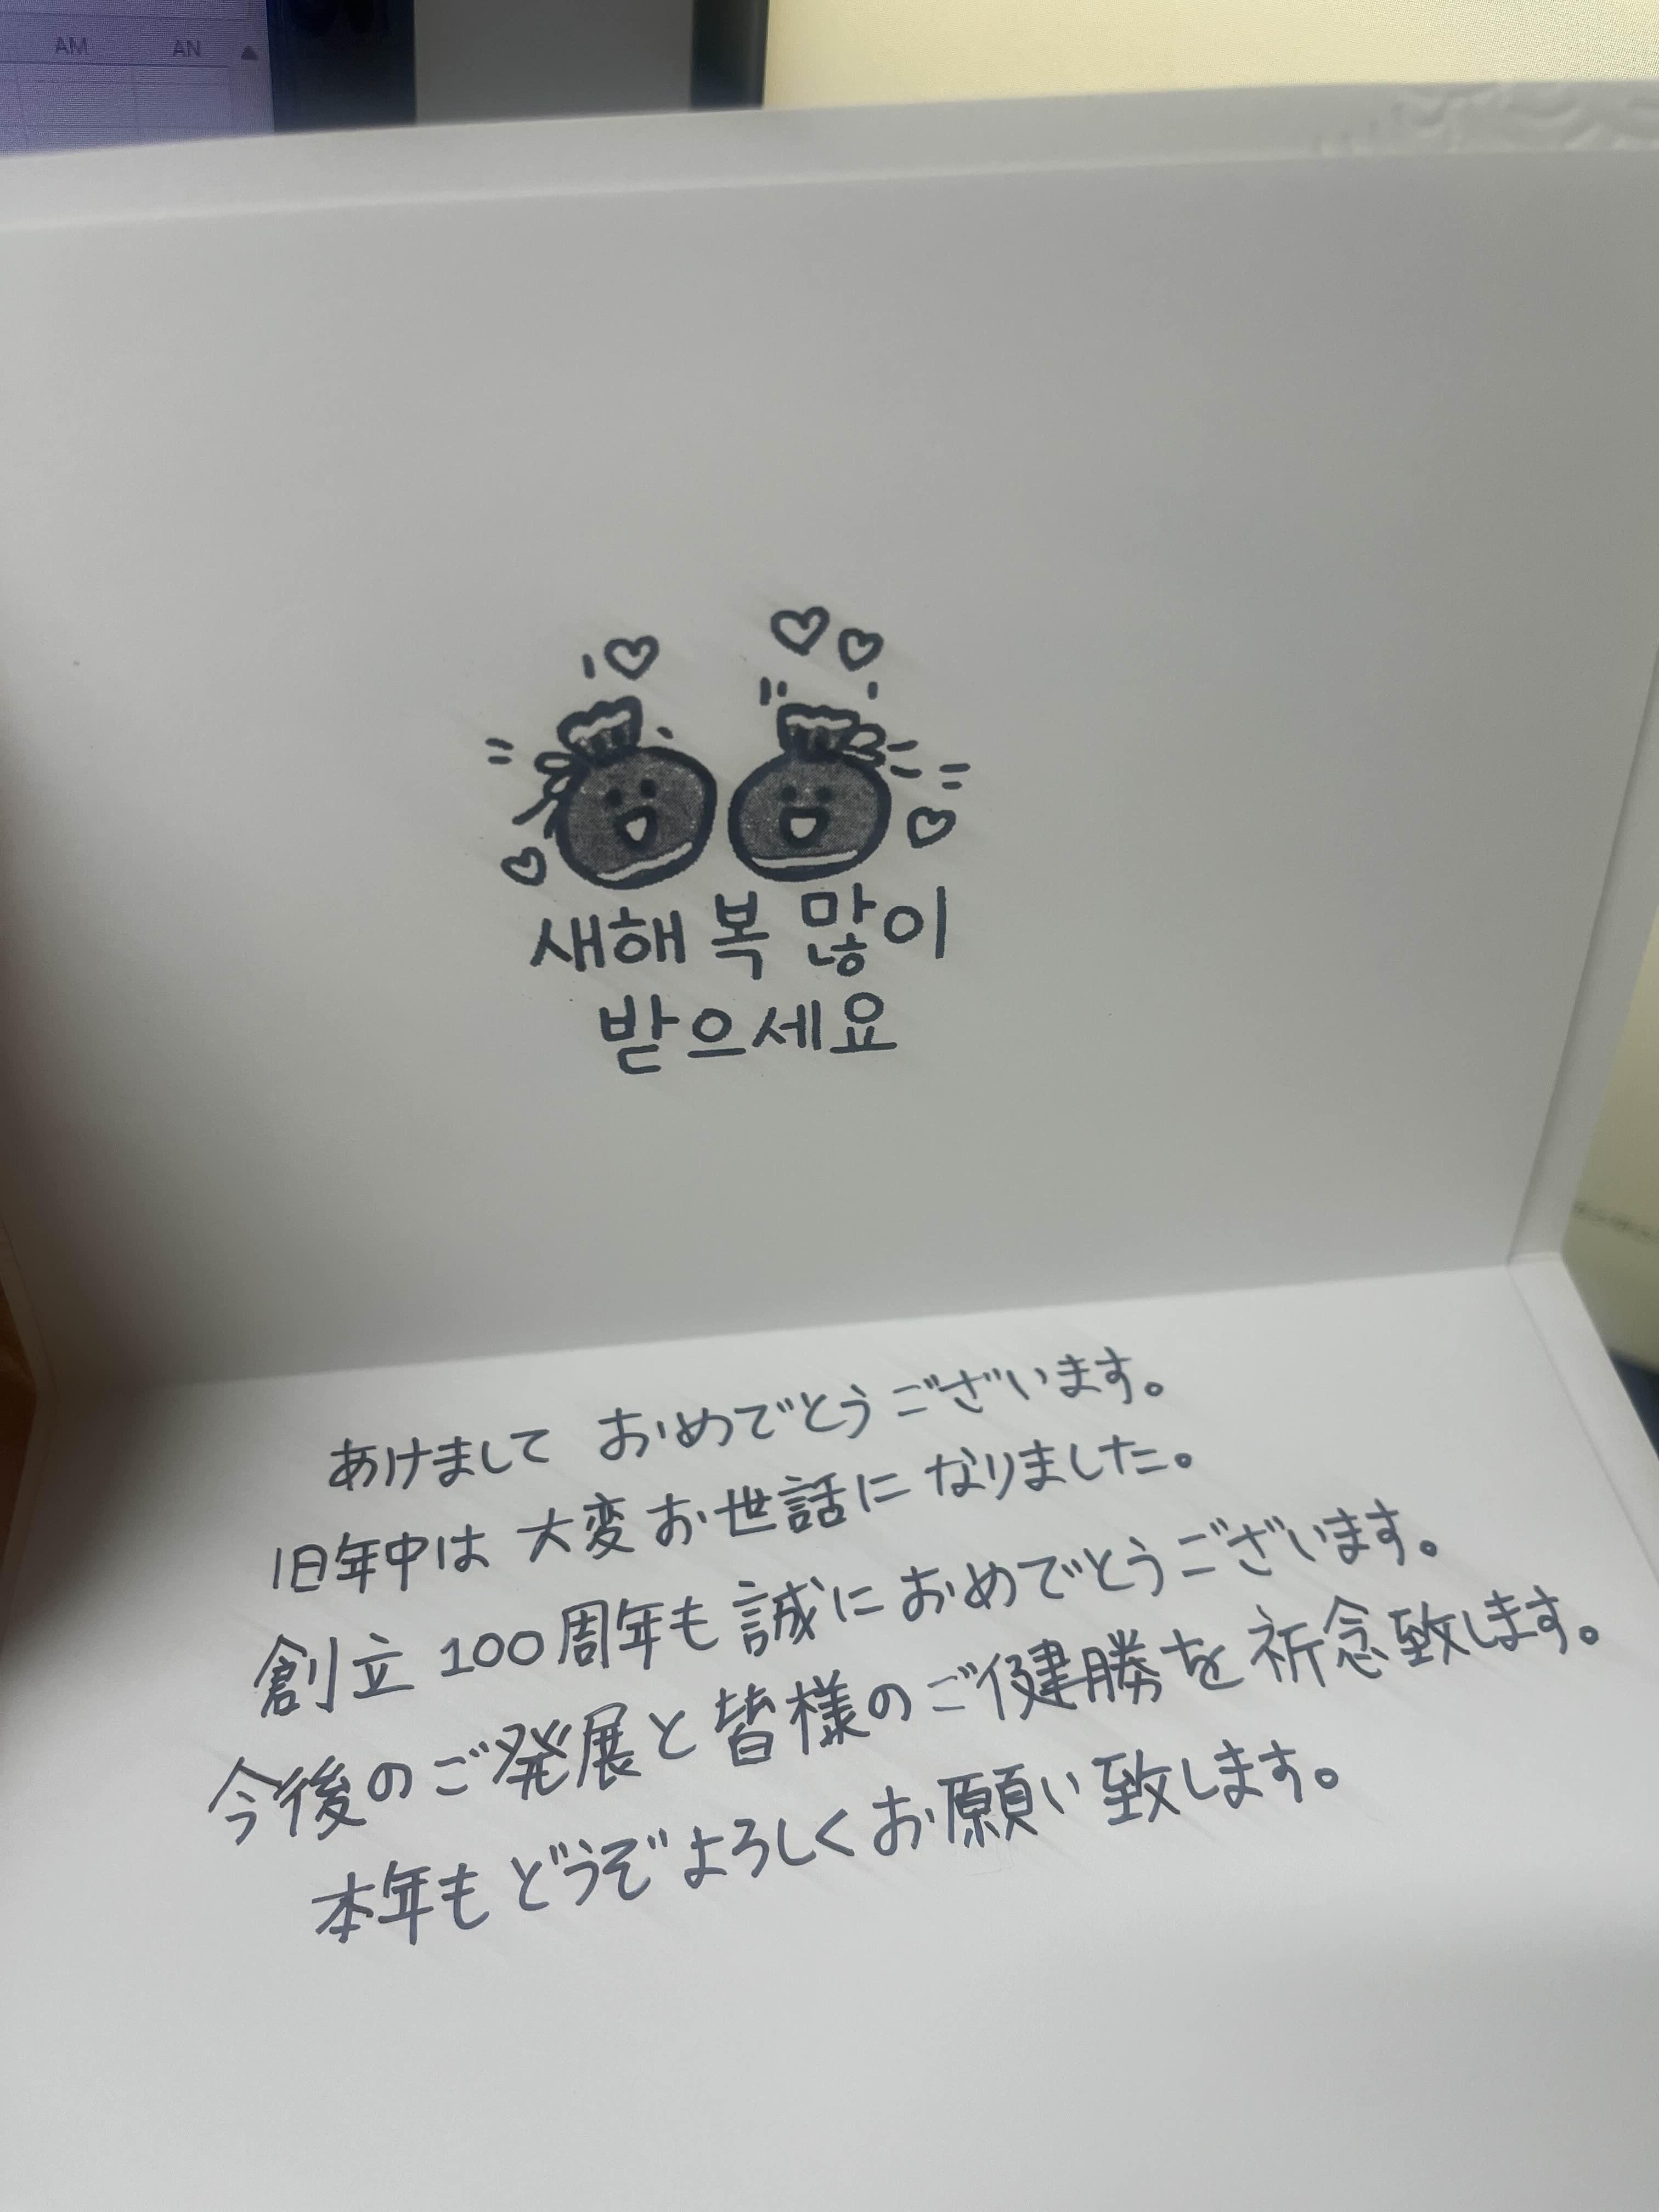 AM AN
새해 복 많이
받으세요
あけまして おめでとうございます。
旧年中は 大変お世話に なりました。
創立 100周年も 誠に おめでとうございます。
今後のご発展と皆様のご健勝を祈念致します。
本年も どうぞ よろしくお願い致します。